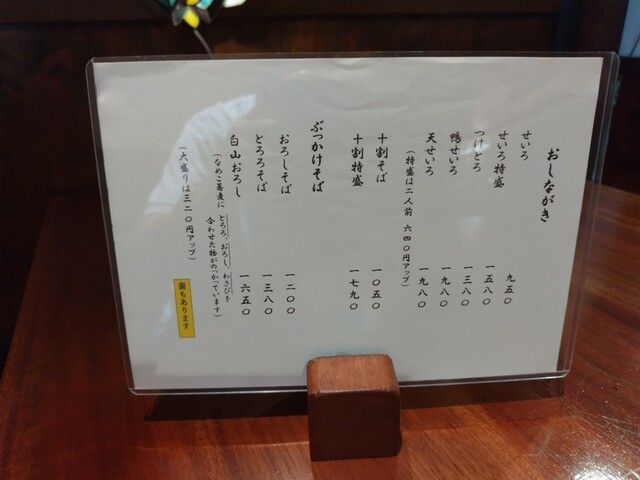 おしながき
せいろ 九五〇
せいろ特盛 一五八〇
つけとろ 一三八〇
鴨せいろ 一九八〇
天せいろ 一九八〇
(特盛は二人前 六四〇円アップ)
十割そば 一〇五〇
十割特盛 一七九〇
ぶっかけそば
おろしそば 一二〇〇
とろろそば 一三八〇
白山おろし 一六五〇
(なめこ蕎麦に とろろ、おろし、わさびを
合わせた物がのっかっています)
(大盛りは三二〇円アップ)
裏もあります